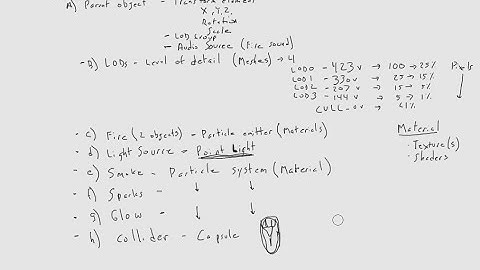 A) Parent object - Transform element
X, Y, Z,
Rotation
Scale
- LOD Group
- Audio Source (Fire sound)
- B) LODs - Level of detail (Meshes) → 4
LOD0 - 423v → 100 → 25% Pixels
LOD1 - 330v → 25 → 15%
LOD2 - 207v → 15 → 5%
LOD3 - 144v → 5 → 1%
CULL - 0v ← <1%
- c) Fire (2 objects) - Particle emitter (Materials)
- d) Light Source = Point Light
- e) Smoke - Particle System (Material)
- f) Sparks - ↓ ↓
- g) Glow - ↓ ↓
- h) Collider - Capsule
Material
· Texture(s)
· Shaders